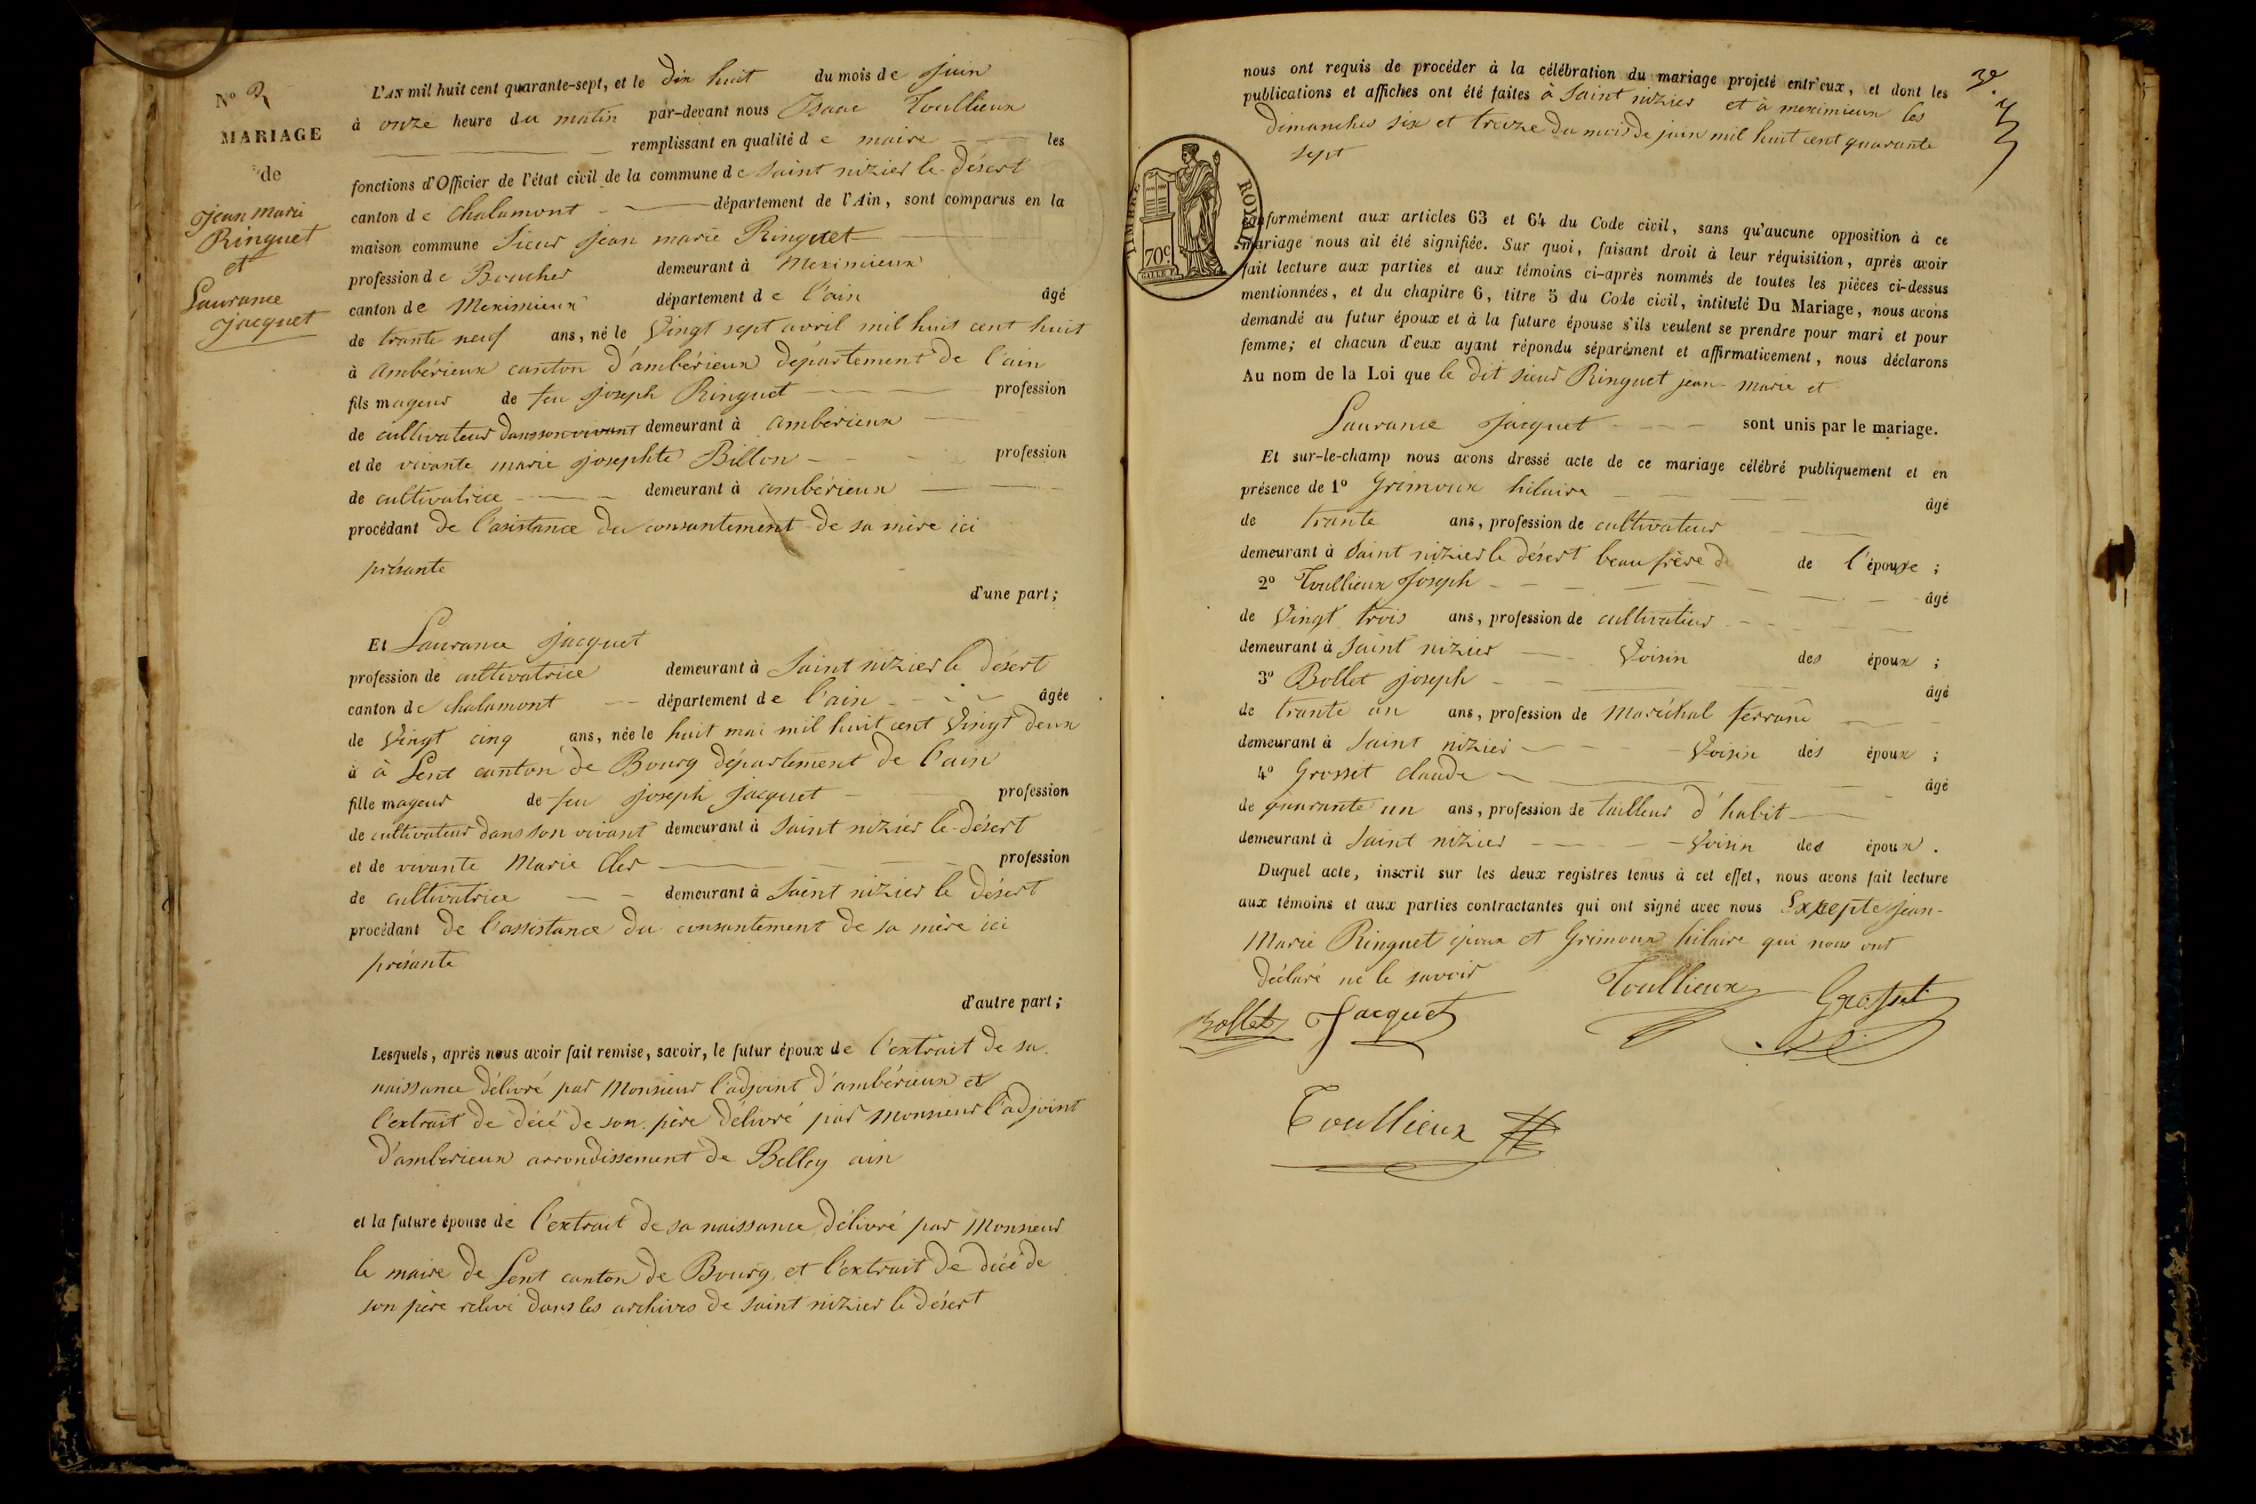 N° 3
MARIAGE
de
jean marie
Ringuet
et
Laurance
jacquet
L'AN mil huit cent quarante-sept, et le dix huit du mois de juin
à onze heure du matin par-devant nous Isaac Toullieux
remplissant en qualité de maire les
fonctions d'Officier de l'état civil de la commune de Saint nizier le désert
canton de Chalamont département de l'Ain, sont comparus en la
maison commune Sieur jean marie Ringuet
profession de Boucher demeurant à Meximieux
canton de Meximieux département de l'ain âgé
de trante neuf ans, né le Vingt sept avril mil huit cent huit
à Ambérieux canton d'ambérieux département de l'ain
fils mageur de feu joseph Ringuet profession
de cultivateur dans son vivant demeurant à ambérieux
et de vivante marie josephte Billon profession
de cultivatrice demeurant à ambérieux
procédant de l'asistance du consantement de sa mère ici
présante
d'une part;
Et Laurance jacquet
profession de cultivatrice demeurant à Saint nizier le désert
canton de chalamont département de l'ain âgée
de Vingt cinq ans, née le huit mai mil huit cent Vingt deux
à à Lent canton de Bourg département de l'ain
fille mageur de feu joseph jacquet profession
de cultivateur dans son vivant demeurant à Saint nizier le désert
et de vivante Marie Cler profession
de cultivatrice demeurant à Saint nizier le désert
procédant de l'assistance du consantement de sa mère ici
présante
d'autre part;
Lesquels, après nous avoir fait remise, savoir, le futur époux de l'extrait de sa
naissance délivré par Monsieur l'adjoint d'ambérieux et
l'extrait de décé de son père délivré par monsieur l'adjoint
d'amberieux arrondissement de Belley ain
et la future épouse de l'extrait de sa naissance délivré par Monsieur
le maire de Lent canton de Bourg et l'extrait de décé de
son père relevé dans les archives de saint nizier le désert
3e
nous ont requis de procéder à la célébration du mariage projeté entr'eux, et dont les
publications et affiches ont été faites à Saint nizier et à meximieux les
dimanches six et treize du mois de juin mil huit cent quarante
sept
TIMBRE ROYAL
70c
conformément aux articles 63 et 64 du Code civil, sans qu'aucune opposition à ce
mariage nous ait été signifiée. Sur quoi, faisant droit à leur réquisition, après avoir
fait lecture aux parties et aux témoins ci-après nommés de toutes les pièces ci-dessus
mentionnées, et du chapitre 6, titre 5 du Code civil, intitulé Du Mariage, nous avons
demandé au futur époux et à la future épouse s'ils veulent se prendre pour mari et pour
femme; et chacun d'eux ayant répondu séparément et affirmativement, nous déclarons
Au nom de la Loi que le dit sieur Ringuet jean-marie et
Laurance jacquet sont unis par le mariage.
Et sur-le-champ nous avons dressé acte de ce mariage célébré publiquement et en
présence de 1° Grimoux hilaire âgé
de trante ans, profession de cultivateur
demeurant à Saint nizier le désert beau frère de de l'épouse ;
2° Toullieux Joseph âgé
de Vingt trois ans, profession de cultivateur
demeurant à Saint nizier Voisin des époux ;
3° Bollet joseph âgé
de trante un ans, profession de Maréchal ferrant
demeurant à Saint nizier Voisin des époux ;
4° Grosset claude âgé
de quarante un ans, profession de tailleur d'habit
demeurant à Saint nizier Voisin des époux .
Duquel acte, inscrit sur les deux registres tenus à cet effet, nous avons fait lecture
aux témoins et aux parties contractantes qui ont signé avec nous Excepte jean-
Marie Ringuet époux et Grimoux hilaire qui nous ont
déclaré ne le savoir
Bollet Jacquet Toullieux Grosset
Toullieux